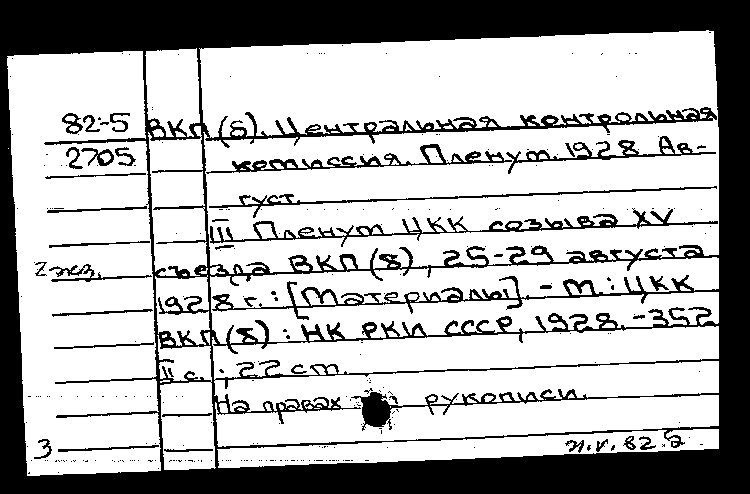 82-5 ВКП(б). Центральная контрольная
2705 комиссия. Пленум. 1928. Ав-
густ.
III Пленум ЦКК созыва XV
2 экз. съезда ВКП(б), 25-29 августа
1928 г. : [Материалы]. - М. : ЦКК
ВКП(б) : НК РКИ СССР, 1928. - 352
II с. ; 22 см.
На правах рукописи.
3